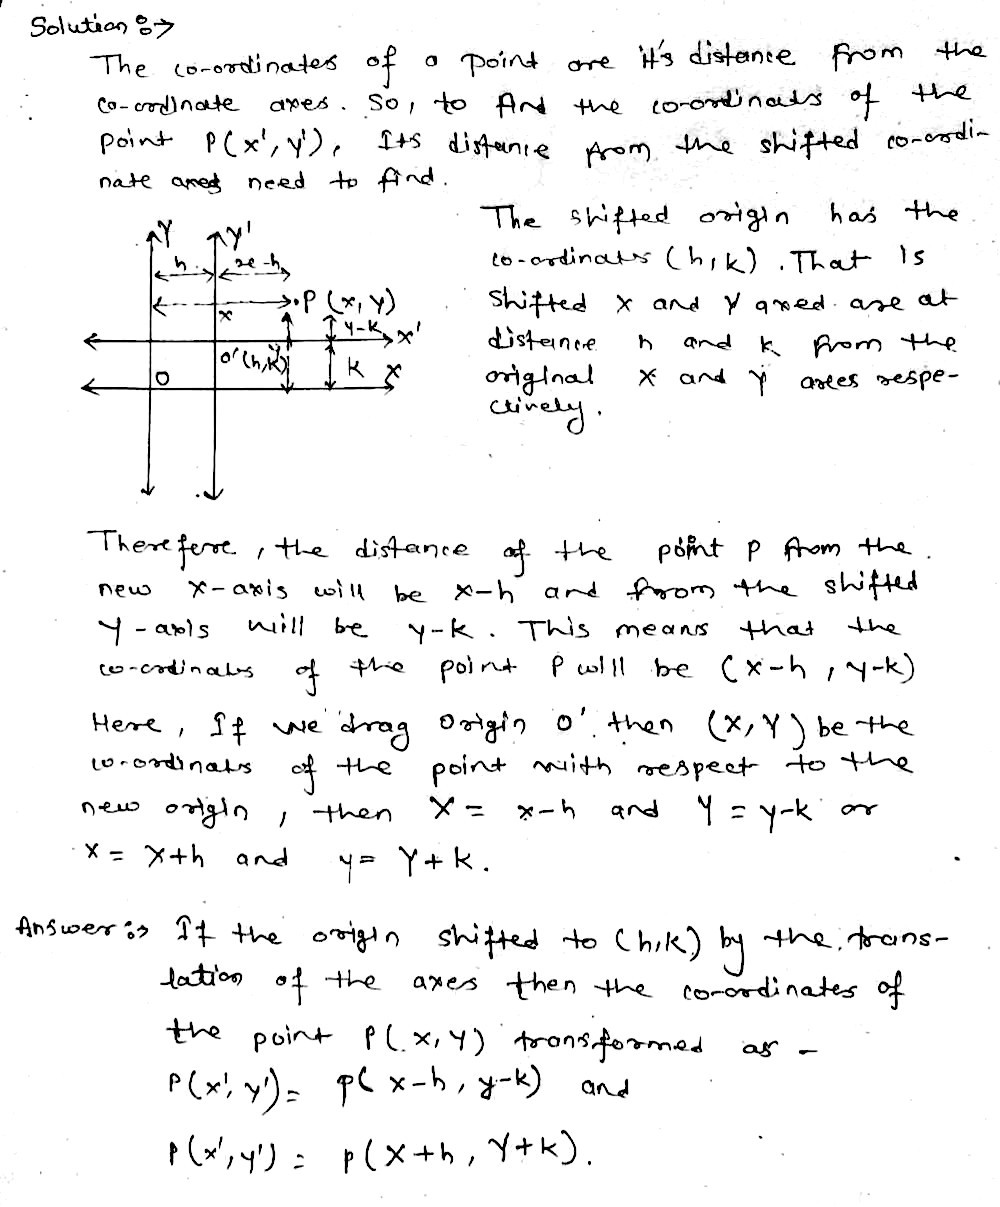 Solution :->
The co-ordinates of a point are it's distance from the
co-ordinate axes. So, to find the co-ordinats of the
point P(x', y'), Its distance from the shifted co-ordi-
nate axes need to find.
The shifted origin has the
co-ordinats (h,k). That is
shifted X and Y axed are at
disteince h and k from the
original X and Y axes respe-
ctively.
Y Y'
h x-h
P (x, y)
x y-k X'
O'(h,k) y k X
O
Therefore, the distance of the point P from the
new X-axis will be x-h and from the shifted
Y-axis will be y-k. This means that the
co-ordinates of the point P will be (x-h, y-k)
Here, If we drag origin O', then (X, Y) be the
co-ordinats of the point with respect to the
new origin, then X = x-h and Y = y-k or
x = X+h and y = Y+k.
Answer :-> If the origin shifted to (h,k) by the trans-
lation of the axes then the co-ordinates of
the point P(x, y) transformed as -
P(x', y') = p(x-h, y-k) and
P(x', y') = p(X+h, Y+k).